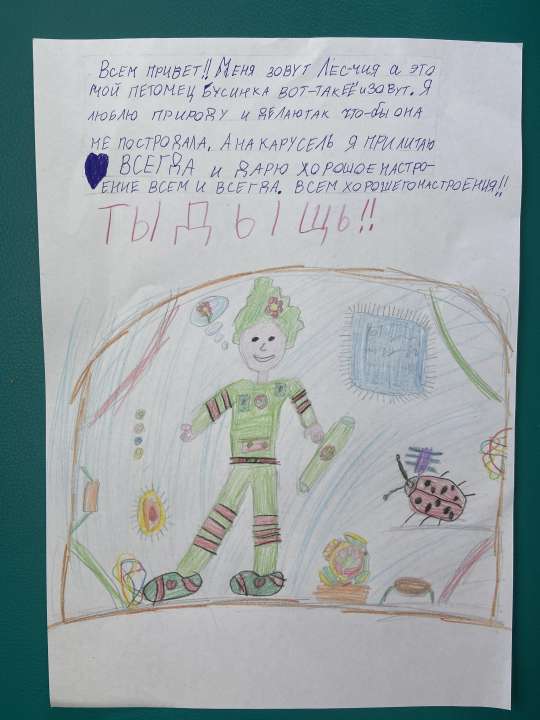 Всем привет!! Меня зовут Лесчия а это
мой петомец Бусинка вот-так её и зовут. Я
люблю природу и делаю так что-бы она
не постродала, А на карусель я прилитаю
ВСЕГДА и дарю хорошое настро-
ение всем и всегда. Всем хорошего настроения!!
ТЫДЫЩЬ!!